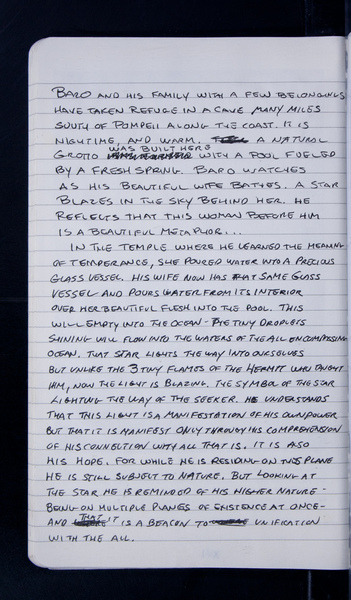 BARO AND HIS FAMILY WITH A FEW BELONGINGS
HAVE TAKEN REFUGE IN A CAVE MANY MILES
SOUTH OF POMPEII ALONG THE COAST. IT IS
NIGHTIME, AND WARM. A NATURAL
GROTTO WAS BUILT HERE WITH A POOL FUELED
BY A FRESH SPRING. BARO WATCHES
AS HIS BEAUTIFUL WIFE BATHES. A STAR
BLAZES IN THE SKY BEHIND HER. HE
REFLECTS THAT THIS WOMAN BEFORE HIM
IS A BEAUTIFUL METAPHOR...
IN THE TEMPLE WHERE HE LEARNED THE MEANING
OF TEMPERANCE, SHE POURED WATER INTO A PRECIOUS
GLASS VESSEL. HIS WIFE NOW HAS THAT SAME GLASS
VESSEL AND POURS WATER FROM ITS INTERIOR
OVER HER BEAUTIFUL FLESH INTO THE POOL. THIS
WILL EMPTY INTO THE OCEAN - THE TINY DROPLETS
SHINING WILL FLOW INTO THE WATERS OF THE ALL ENCOMPASSING
OCEAN. THAT STAR LIGHTS THE WAY INTO OURSELVES
BUT UNLIKE THE 3 TINY FLAMES OF THE HERMIT WHO TAUGHT
HIM, NOW THE LIGHT IS BLAZING. THE SYMBOL OF THE STAR
LIGHTING THE WAY OF THE SEEKER. HE UNDERSTANDS
THAT THIS LIGHT IS A MANIFESTATION OF HIS OWN POWER
BUT THAT IT IS MANIFEST ONLY THROUGH HIS COMPREHENSION
OF HIS CONNECTION WITH ALL THAT IS. IT IS ALSO
HIS HOPE. FOR WHILE HE IS RESIDING ON THIS PLANE
HE IS STILL SUBJECT TO NATURE. BUT LOOKING AT
THE STAR HE IS REMINDED OF HIS HIGHER NATURE -
BEING ON MULTIPLE PLANES OF EXISTENCE AT ONCE -
AND THAT IT IS A BEACON TO UNIFICATION
WITH THE ALL.